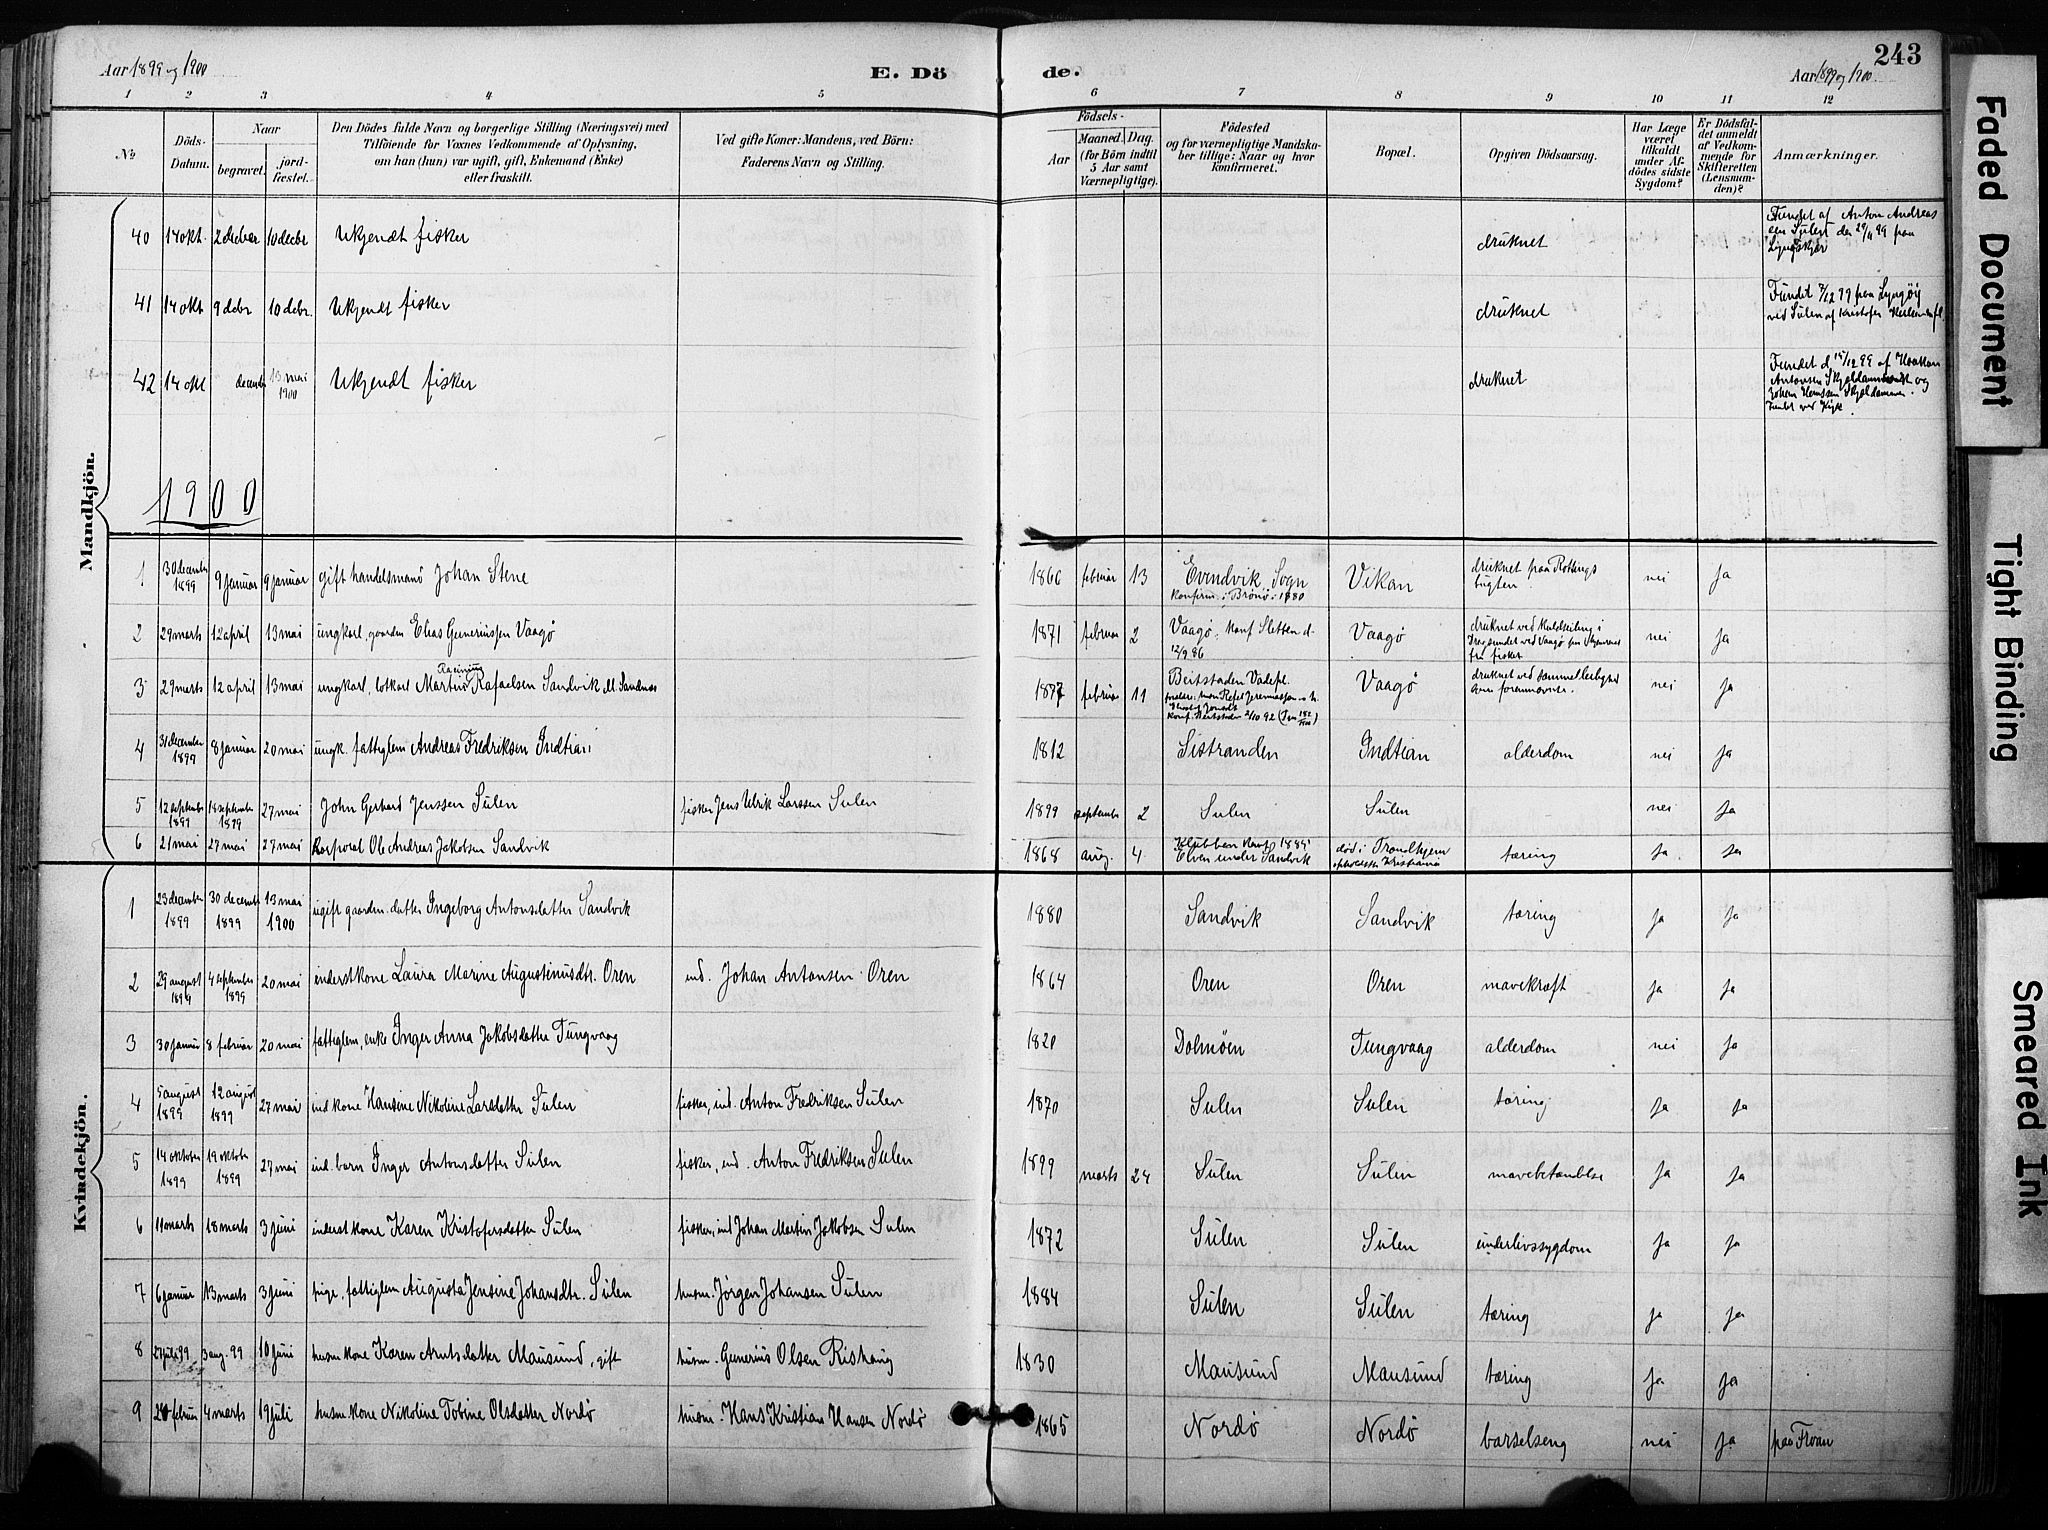 243
Aar 1899 og 1900
E. Dö
de.
Aar 1899 og 1900.
1 2 3 4 5 6 7 8 9 10 11 12
No
Döds-Datum.
Naar
begravet.
jordfæstet.
Den Dödes fulde Navn og borgerlige Stilling (Næringsvei) med
Tilföiende for Voxnes Vedkommende af Oplysning,
om han (hun) var ugift, gift, Enkemand (Enke)
eller fraskilt.
Ved gifte Koner: Mandens, ved Börn:
Faderens Navn og Stilling.
Födsels-
Aar
Maaned. Dag.
(for Börn indtil
5 Aar samt
Værnepligtige).
Födested
og for værnepligtige Mandskaber tillige: Naar og hvor
konfirmeret.
Bopæl.
Opgiven Dödsaarsag.
Har Læge
været
tilkaldt
under Afdödes sidste
Sygdom?
Er Dödsfaldet anmeldt
af Vedkommende for
Skifteretten
(Lensmanden)?
Anmærkninger.
Mandkjön.
40 14 okt. 2 decber 10 decbr Ukjendt fisker druknet Fundet af Anton Andreas
sen Sulen den 29/11 99 paa
41 14 okt 9 debr 10 debr. Ukjendt fisker druknet Fundet 7/12 99 paa Lyngöig
ved Sulen af Kristofer
42 14 okt decembr 13 mai 1900 Ukjendt fisker druknet Fundet d. 15/12 99 af Haakon
Antonsen og
1900
1 30 december 1899 9 januar 9 januar gift handelsmand Johan Stene 1860 februar 13 Evindvik, Sogn
konfirm. i Brönö i 1880 Vikan druknet paa Rottingsbugten. nei ja
2 29 marts 12 april 13 mai ungkarl, gaardm Elias Gunerinssen Vaagø 1871 februar 2 Vaagø, konf Sletten d.
12/9 86 Vaagø druknet ved Kuldseiling i
Dragsundet ved Vaagø
fra fisket nei ja
3 29 marts 12 april 13 mai ungkarl, lotkarl Martin Rasinus Rafaelsen Sandvik dl. Sandnes 1877 februar 11 Beitstaden
konf. Beitstaden 2/10 92 Vaagø druknet ved sammelleilighed
som forannævnte. nei ja
4 31 december 1899 8 januar 20 mai ungk. fattiglem Andreas Fredriksen Indtian 1812 Sistranden Indtian alderdom nei ja
5 12 september 1899 18 september 1899 27 mai John Gerhard Jenssen Sulen fisker Jens Ulrik Larssen Sulen 1899 september 2 Sulen Sulen nei ja
6 21 mai 27 mai 27 mai Korporal Ole Andreas Jakobsen Sandvik 1868 aug. 4 Klubben konf
Elven under Sandvik död i Trondhjem
Kristiania tæring ja ja
Kvindekjön.
1 23 december 1899 30 december 1899 13 mai 1900 ugift gaardm. datter Ingeborg Antonsdatter Sandvik 1880 Sandvik Sandvik tæring ja ja
2 29 august 1899 4 september 1899 20 mai inderstkone Laura Marine Augustinusdtr. Oren ind. Johan Antonsen Oren 1864 Oren Oren mavekræft ja ja
3 30 januar 8 februar 20 mai fattiglem, enke Inger Anna Jakobsdatter Tungvaag 1820 Dolmöen Tungvaag alderdom nei ja
4 5 august 1899 12 august 1899 27 mai ind kone Hansine Nikoline Larsdatter Sulen fisker, ind. Anton Fredriksen Sulen 1870 Sulen Sulen tæring ja ja
5 14 oktober 1899 19 oktobr 1899 27 mai ind. barn Inger Antonsdatter Sulen fisker, ind. Anton Fredriksen Sulen 1899 marts 24 Sulen Sulen mavebetændelse ja ja
6 11 marts 18 marts 3 juni inderst kone Karen Kristofersdatter Sulen fisker, ind Johan Martin Jakobsen Sulen 1872 Sulen Sulen underlivssygdom ja ja
7 6 januar 13 marts 3 juni pige, fattiglem Augusta Jensine Johansdtr. Sulen husm. Jørgen Johansen Sulen 1884 Sulen Sulen tæring ja ja
8 27 juli 99 3 aug. 99 10 juni husm kone Karen Arntsdatter Mausund, gift husm. Gunerius Olsen Rishaug 1830 Mausund Mausund tæring ja ja
9 20 februar 4 marts 19 juli husm kone Nikoline Tobine Olsdatter Nordø husm. Hans Kristian Hansen Nordø 1865 Nordø Nordø barselseng nei ja paa Froan
Faded Document
Tight Binding
Smeared Ink